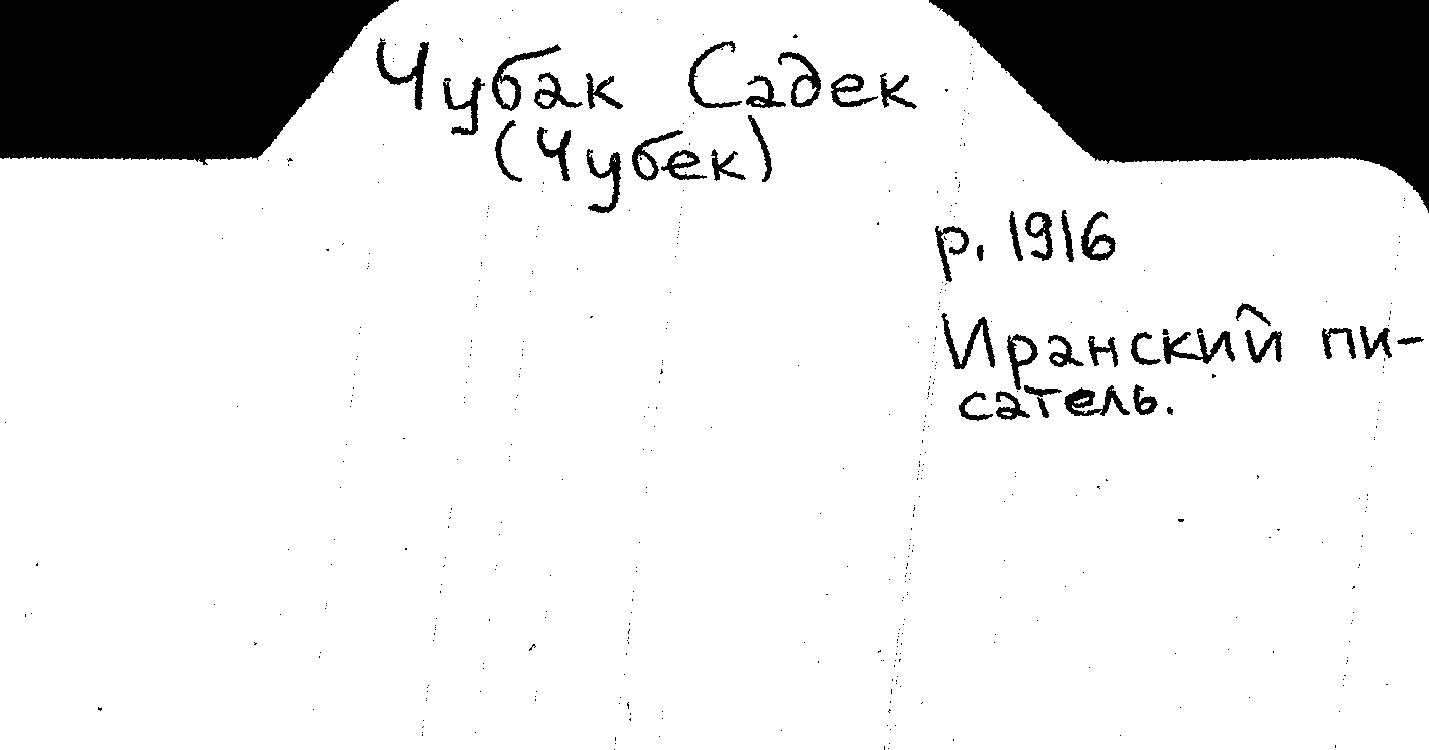 Чубак Садек
(Чубек)
р. 1916
Иранский пи-
сатель.